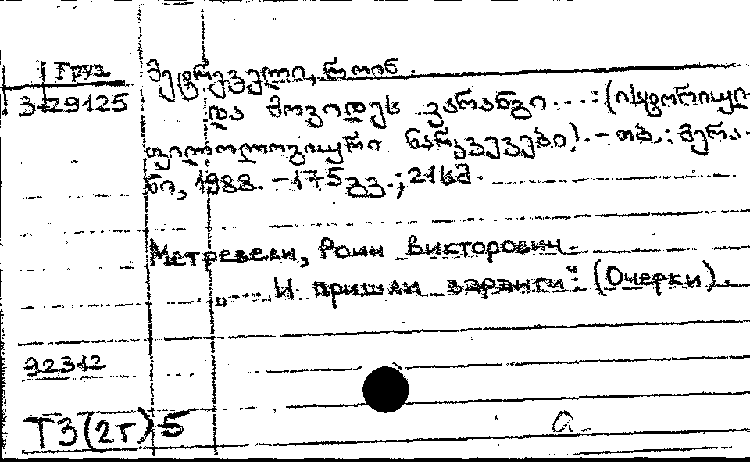 Груз
3-29125
მეტრეველი, როინ.
და მოვიდეს ვარანგი...: (ისტორიულ-
ფილოლოგიური ნარკვევები). - თბ.: მერა-
ნი, 1988. - 175 გვ.; 21 სმ.
Метревели, Роин Викторович.
„... И пришли варанги“: (Очерки).
92312
Т3(2Г)5
a